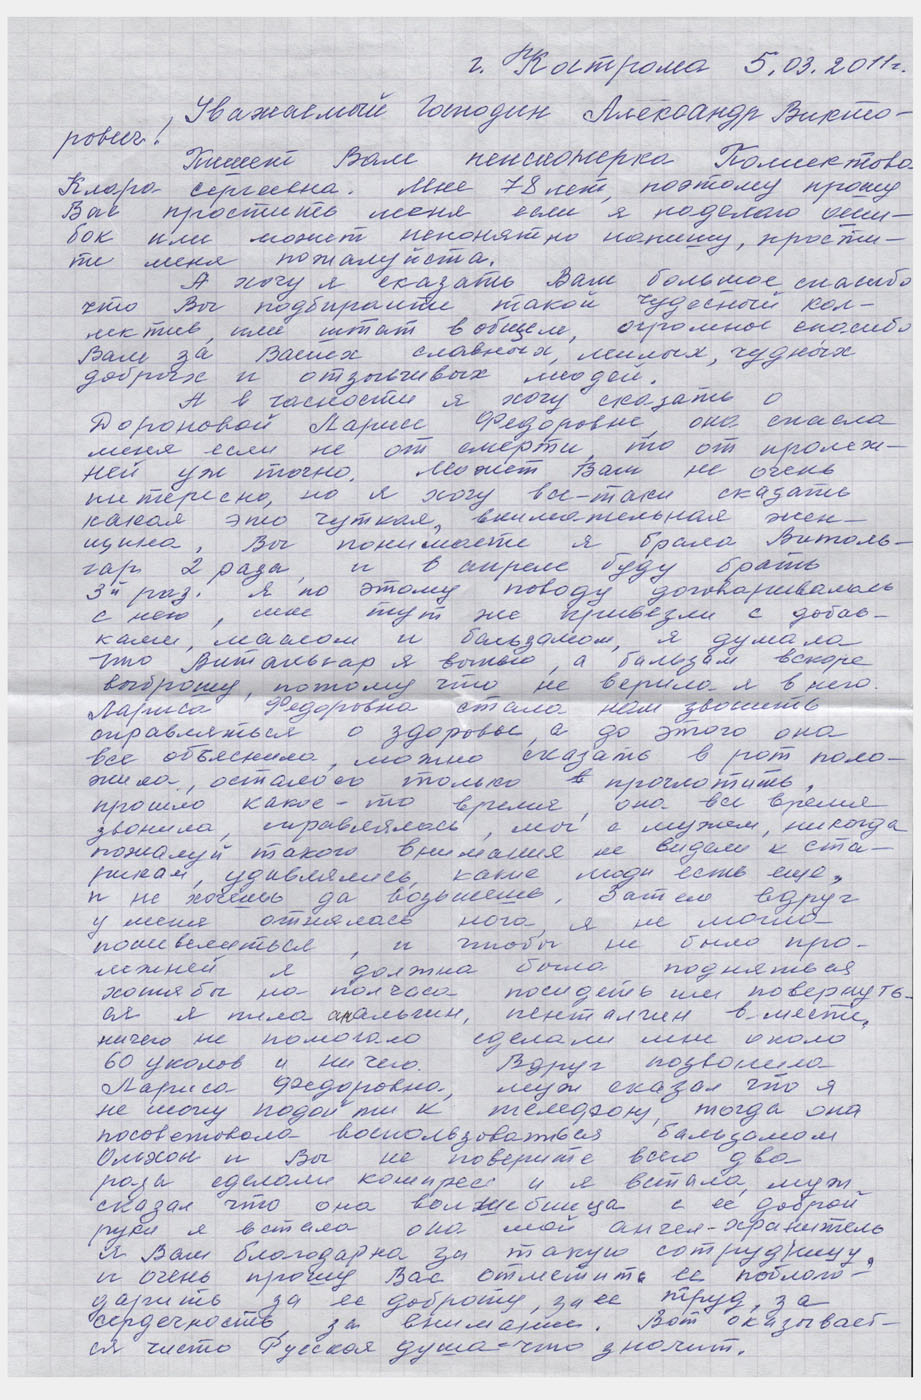 г. Кострома 5.03.2011г.
Уважаемый Господин Александр Викто-
рович!
Пишет Вам пенсионерка
Клара Сергеевна. Мне 78 лет, поэтому прошу
Вас простить меня если я наделаю оши-
бок или может непонятно напишу, прости-
те меня пожалуйста.
А хочу я сказать Вам большое спасибо
что Вы подбираите такой чудесный кол-
лектив, или штат вобщем, огромное спасибо
Вам за Ваших славных, милых, чудных
добрых и отзывчивых людей.
А в часности я хочу сказать о
Дороновой Ларисе Федоровне, она спасла
меня если не от смерти, то от пролеж-
ней уж точно. Может Вам не очень
интересно, но я хочу все-таки сказать
какая это чуткая, внимательная жен-
щина, Вы понимаете я брала Виталь-
гар 2 раза, и в апреле буду брать
3й раз. Я по этому поводу договаривалась
с нею, мне тут же привезли с добав-
ками, маслом и бальзамом, я думала
что Витальгар я выпью, а бальзам вскоре
выброшу, потому что не верила я в него.
Лариса Федоровна стала нам звонить
справляться о здоровье, а до этого она
все объяснила, можно сказать в рот поло-
жила, осталось только проглотить,
прошло какое-то время, она все время
звонила, справлялась, мы с мужем, никогда
пожалуй такого внимания не видели к ста-
рикам, удивлялись, какие люди есть еще,
и не хочешь да возьмешь. Затем вдруг
у меня отнялась нога, я не могла
пошевелиться, и чтобы не было про-
лежней я должна была подняться
хотябы на полчаса посидеть или повернуть-
ся я пила анальгин, пенталгин вместе,
ничего не помогало сделали мне около
60 уколов и ничего. Вдруг позвонила
Лариса Федоровна, муж сказал что я
не могу подойти к телефону, тогда она
посоветовала воспользоваться бальзамом
Ольхон и Вы не поверите всего два
раза сделали компресс и я встала, муж
сказал что она волшебница с ее доброй
руки я встала она мой ангел-хранитель
я Вам благодарна за такую сотрудницу,
и очень прошу Вас отметить ее поблаго-
дарить за ее доброту, за ее труд, за
сердечность, за внимание. Вот оказывает-
ся чисто Русская душа-что значит.